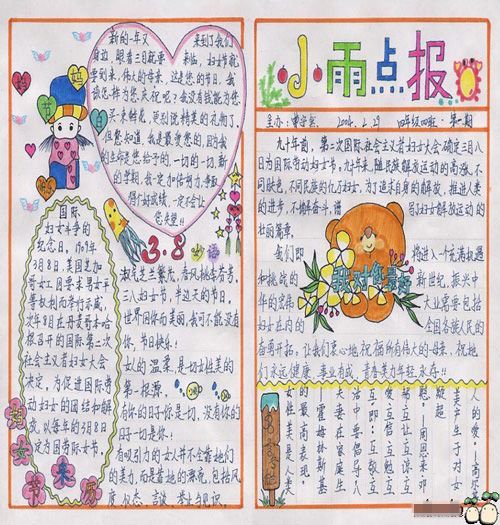 新的一年又来到了我们
身边，眼看三月就要来临，妇女节就
要到来，伟大的母亲，这是您的节日，我
该怎样为您庆祝呢？我没有钱能为您
买一束鲜花，更别说精美的礼物了，
但您知道，我是最爱您的，因为我
的生命是您给予的，一切的一切，新
的学期，我一定加倍努力，争取
得个好成绩，一定不会让
您失望！！
国际
妇女斗争的
纪念日，1909年
3月8日，美国芝加
哥女工因要求男女平
等权利而举行示威，
次年8月在丹麦哥本哈
根召开的国际第二次
社会主义者妇女大会
决定，为促进国际劳
动妇女的团结和解
放，以每年的3月8日
定为国际劳动妇女节。
妇女节来历
3.8
妙语
淑气芝兰繁茂，春风桃李芳菲。
三八妇女节，半边天的节日，
世界因你而美丽，我可不能没有
你，节日快乐！
女人的温柔是一切女性美的
第一根源，
有你的日子你是一切，没有你的
日子一切是你！
有吸引力的女人并不全靠她们
的美力，而是靠她的漂亮，包括风
度、仪态、言谈、举止与见识。
小雨点报
主办：曹守宽 2004.2.29 四年级四班 第一期
九十年前，第二次国际社会主义者妇女大会确定三月八
日为国际劳动妇女节。九十年来，随民族解放运动的高涨，不
同肤色，不同民族的亿万妇女，为了追求自身的解放，推进人类
的进步，不懈奋斗，谱写了妇女解放运动的
壮丽篇章。
我们即将进入一个充满机遇
和挑战的新世纪，振兴中
华的宏伟大业需要包括
妇女在内的全国各族人民的
奋勇开拓，让我们衷心地祝福所有伟大的母亲，祝她
们永远健康，事业有成，青春美力年轻，永存！！
我对你最好
人的爱。——高尔
美产生于对女
献起
恩来邓
颖超